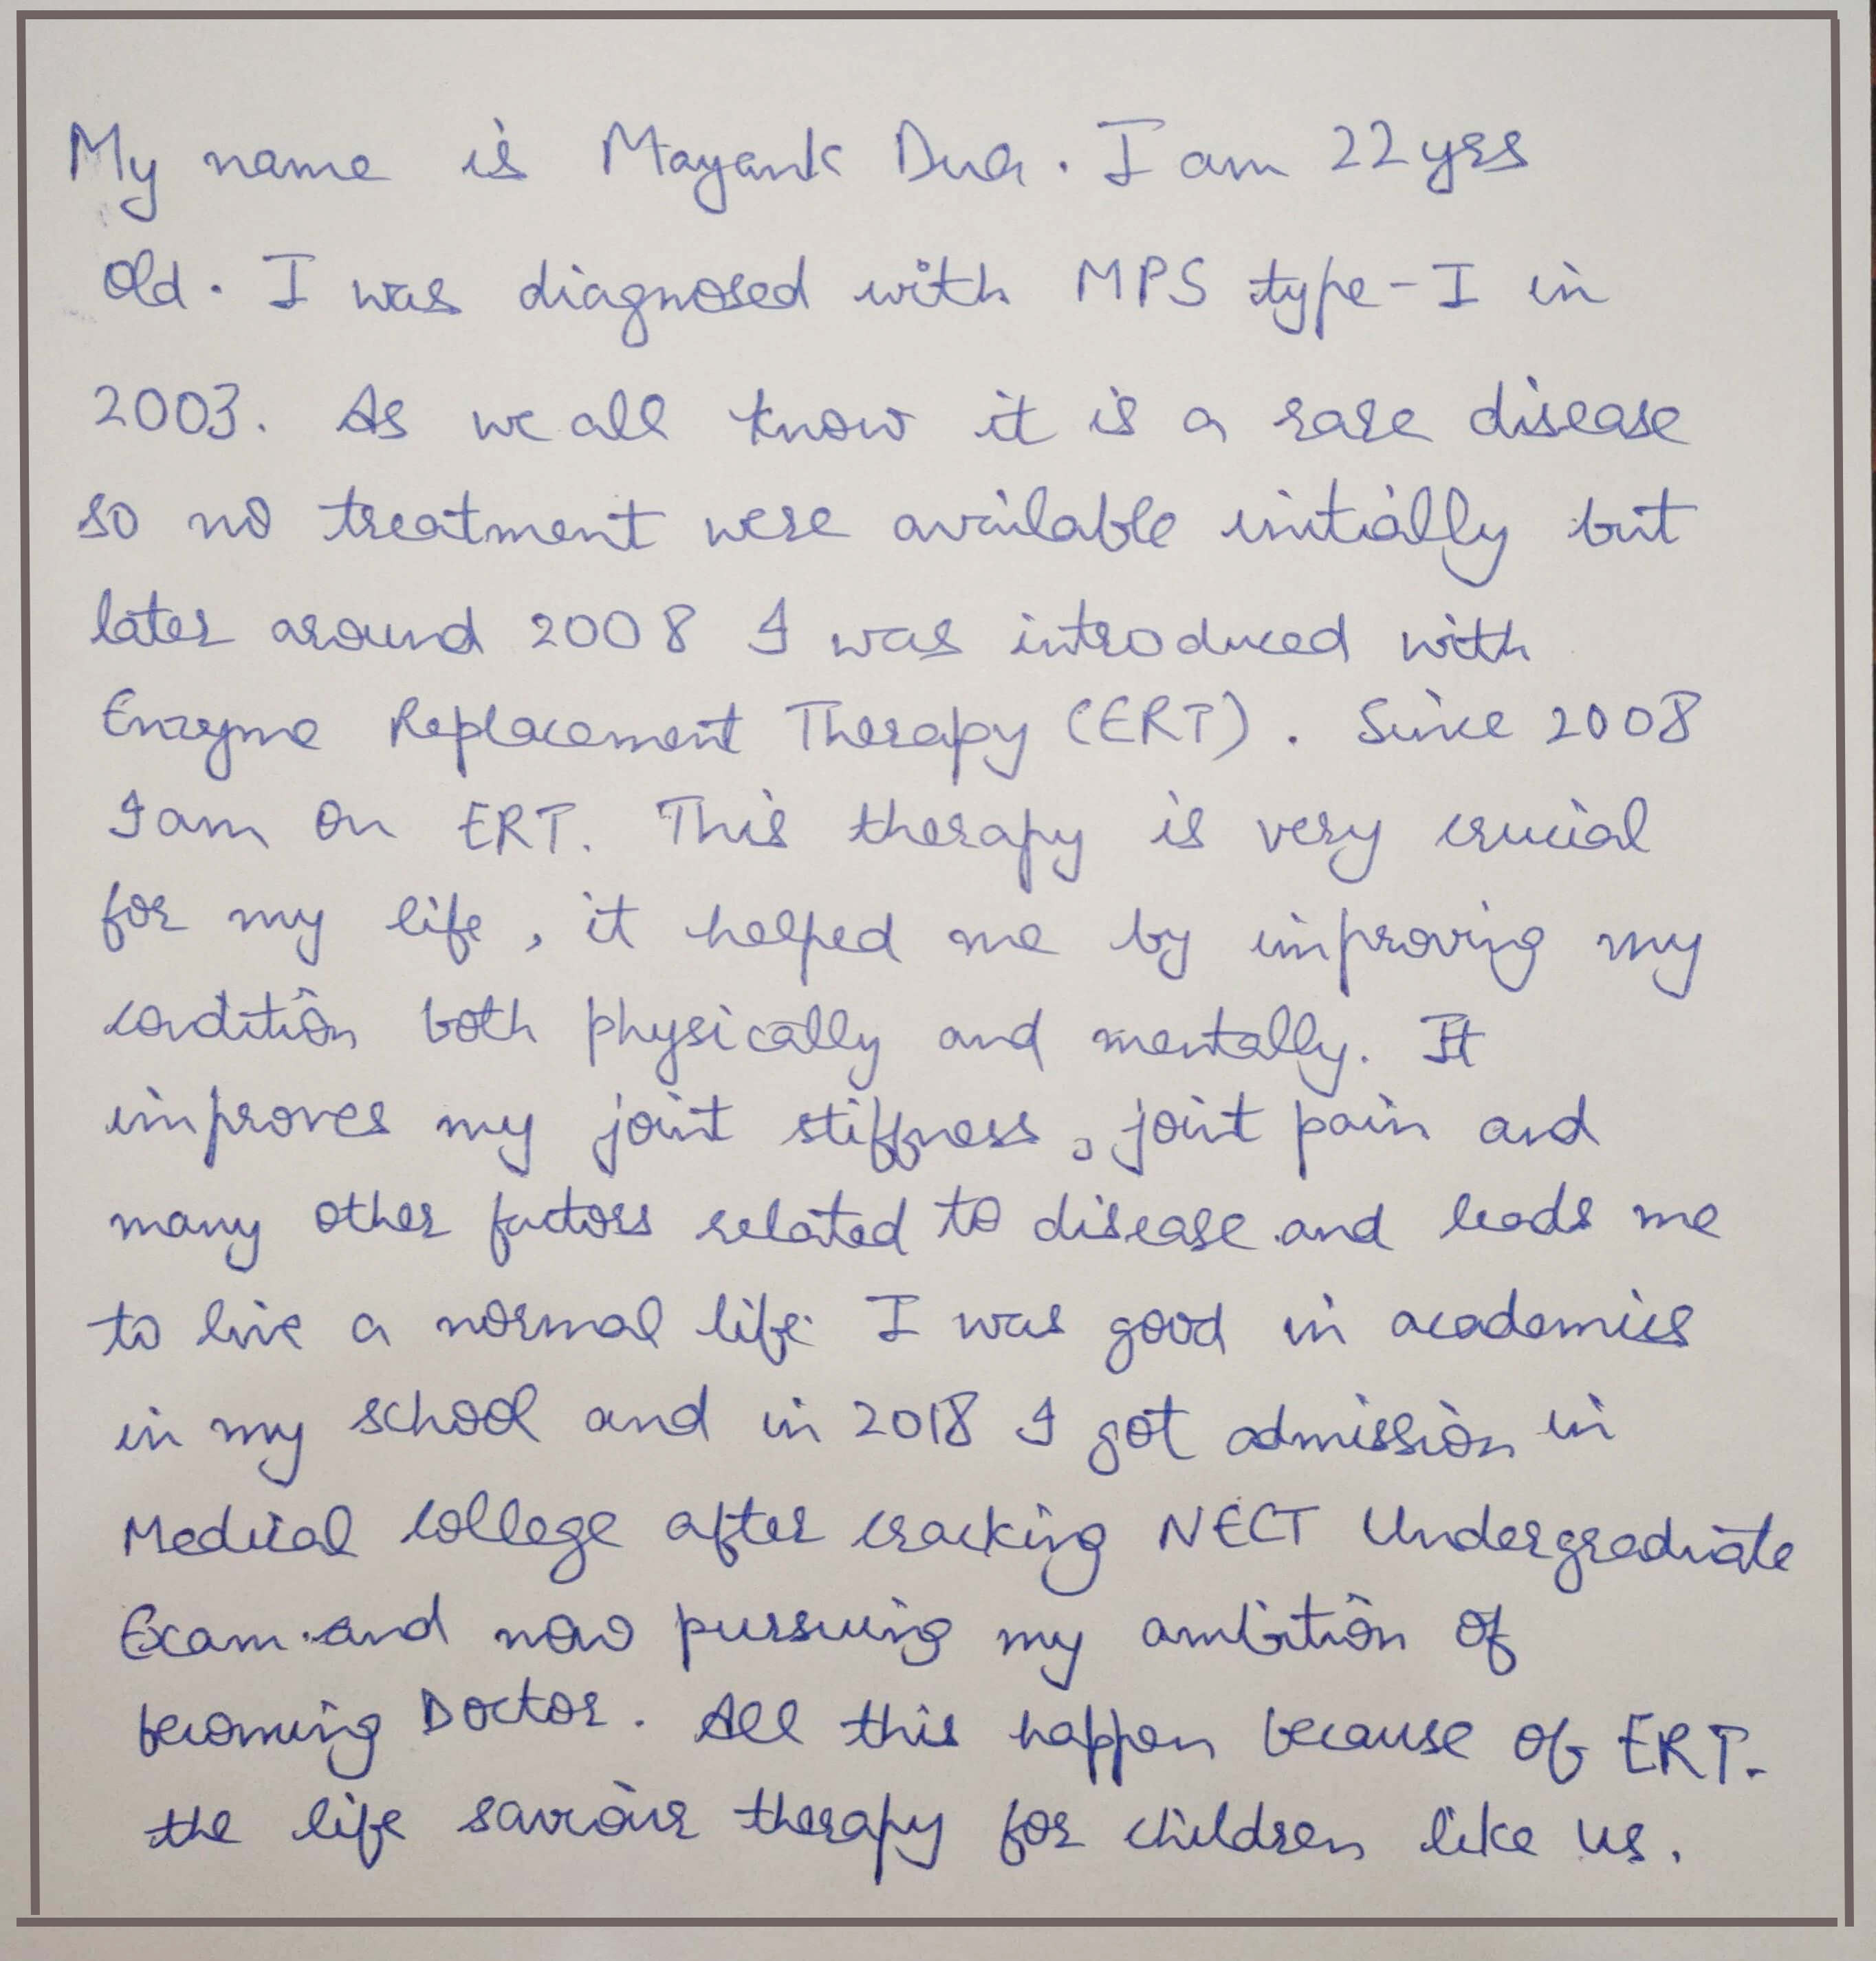 My name is Mayank Dua. I am 22 yrs
Old. I was diagnosed with MPS type-I in
2003. As we all know it is a rare disease
so no treatment were available initially but
later around 2008 I was introduced with
Enzyme Replacement Therapy (ERT). Since 2008
I am on ERT. This therapy is very crucial
for my life, it helped me by improving my
condition both physically and mentally. It
improves my joint stiffness, joint pain and
many other factors related to disease and leads me
to live a normal life. I was good in academics
in my school and in 2018 I got admission in
Medical College after cracking NECT Undergraduate
Exam. and now pursuing my ambition of
becoming Doctor. All this happen because of ERT.
the life saviour therapy for children like us.